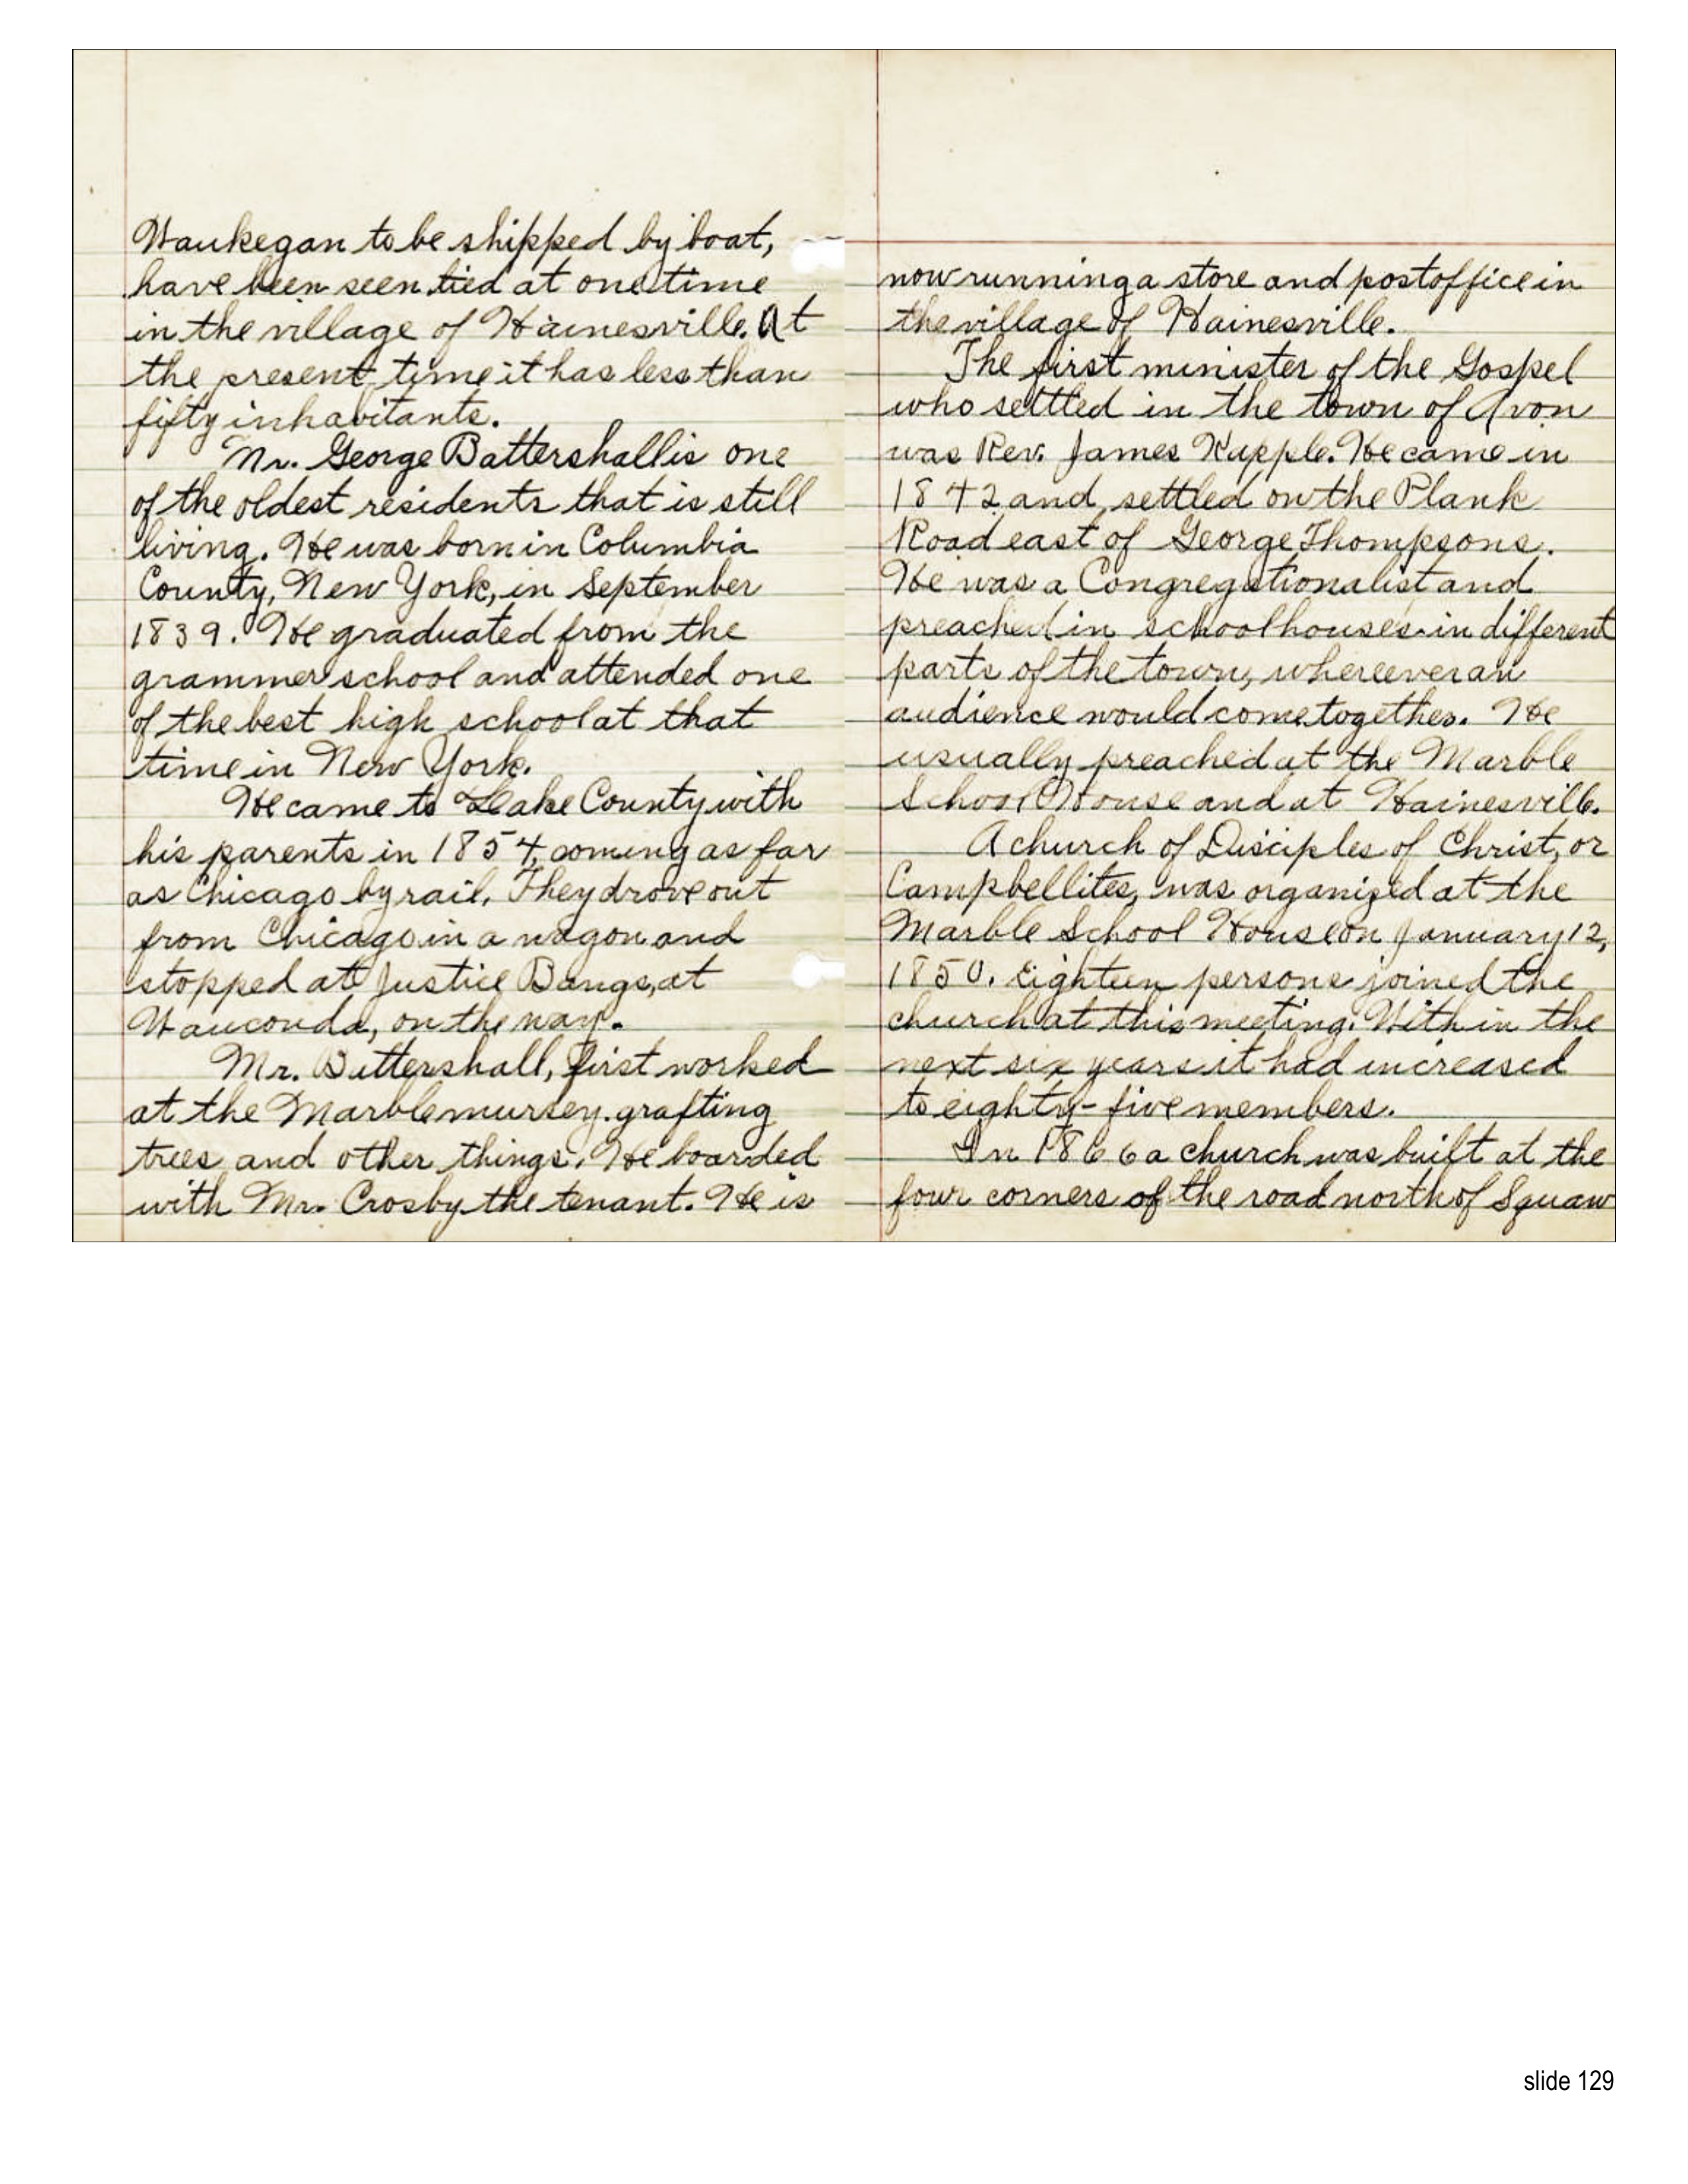 Waukegan to be shipped by boat,
have been seen tied at one time
in the village of Hainesville. At
the present time it has less than
fifty inhabitants.
Mr. George Battershall is one
of the oldest residents that is still
living. He was born in Columbia
County, New York, in September
1839. He graduated from the
grammer school and attended one
of the best high school at that
time in New York.
He came to Lake County with
his parents in 1854, coming as far
as Chicago by rail. They drove out
from Chicago in a wagon and
stopped at Justice Bangs, at
Wauconda, on the way.
Mr. Battershall, first worked
at the Marble nursey. grafting
trees and other things. He boarded
with Mr. Crosby the tenant. He is
now running a store and postoffice in
the village of Hainesville.
The first minister of the Gospel
who settled in the town of Avon
was Rev. James Kapple. He came in
1842 and settled on the Plank
Road east of George Thompsons.
He was a Congregationalist and
preached in schoolhouses in different
parts of the town, whereever an
audience would come together. He
usually preached at the Marble
School House and at Hainesville.
A church of Disciples of Christ, or
Campbellites, was organized at the
Marble School House on January 12,
1850. Eighteen persons joined the
church at this meeting. With in the
next six years it had increased
to eighty-five members.
In 1866 a church was built at the
four corners of the road north of Squaw
slide 129